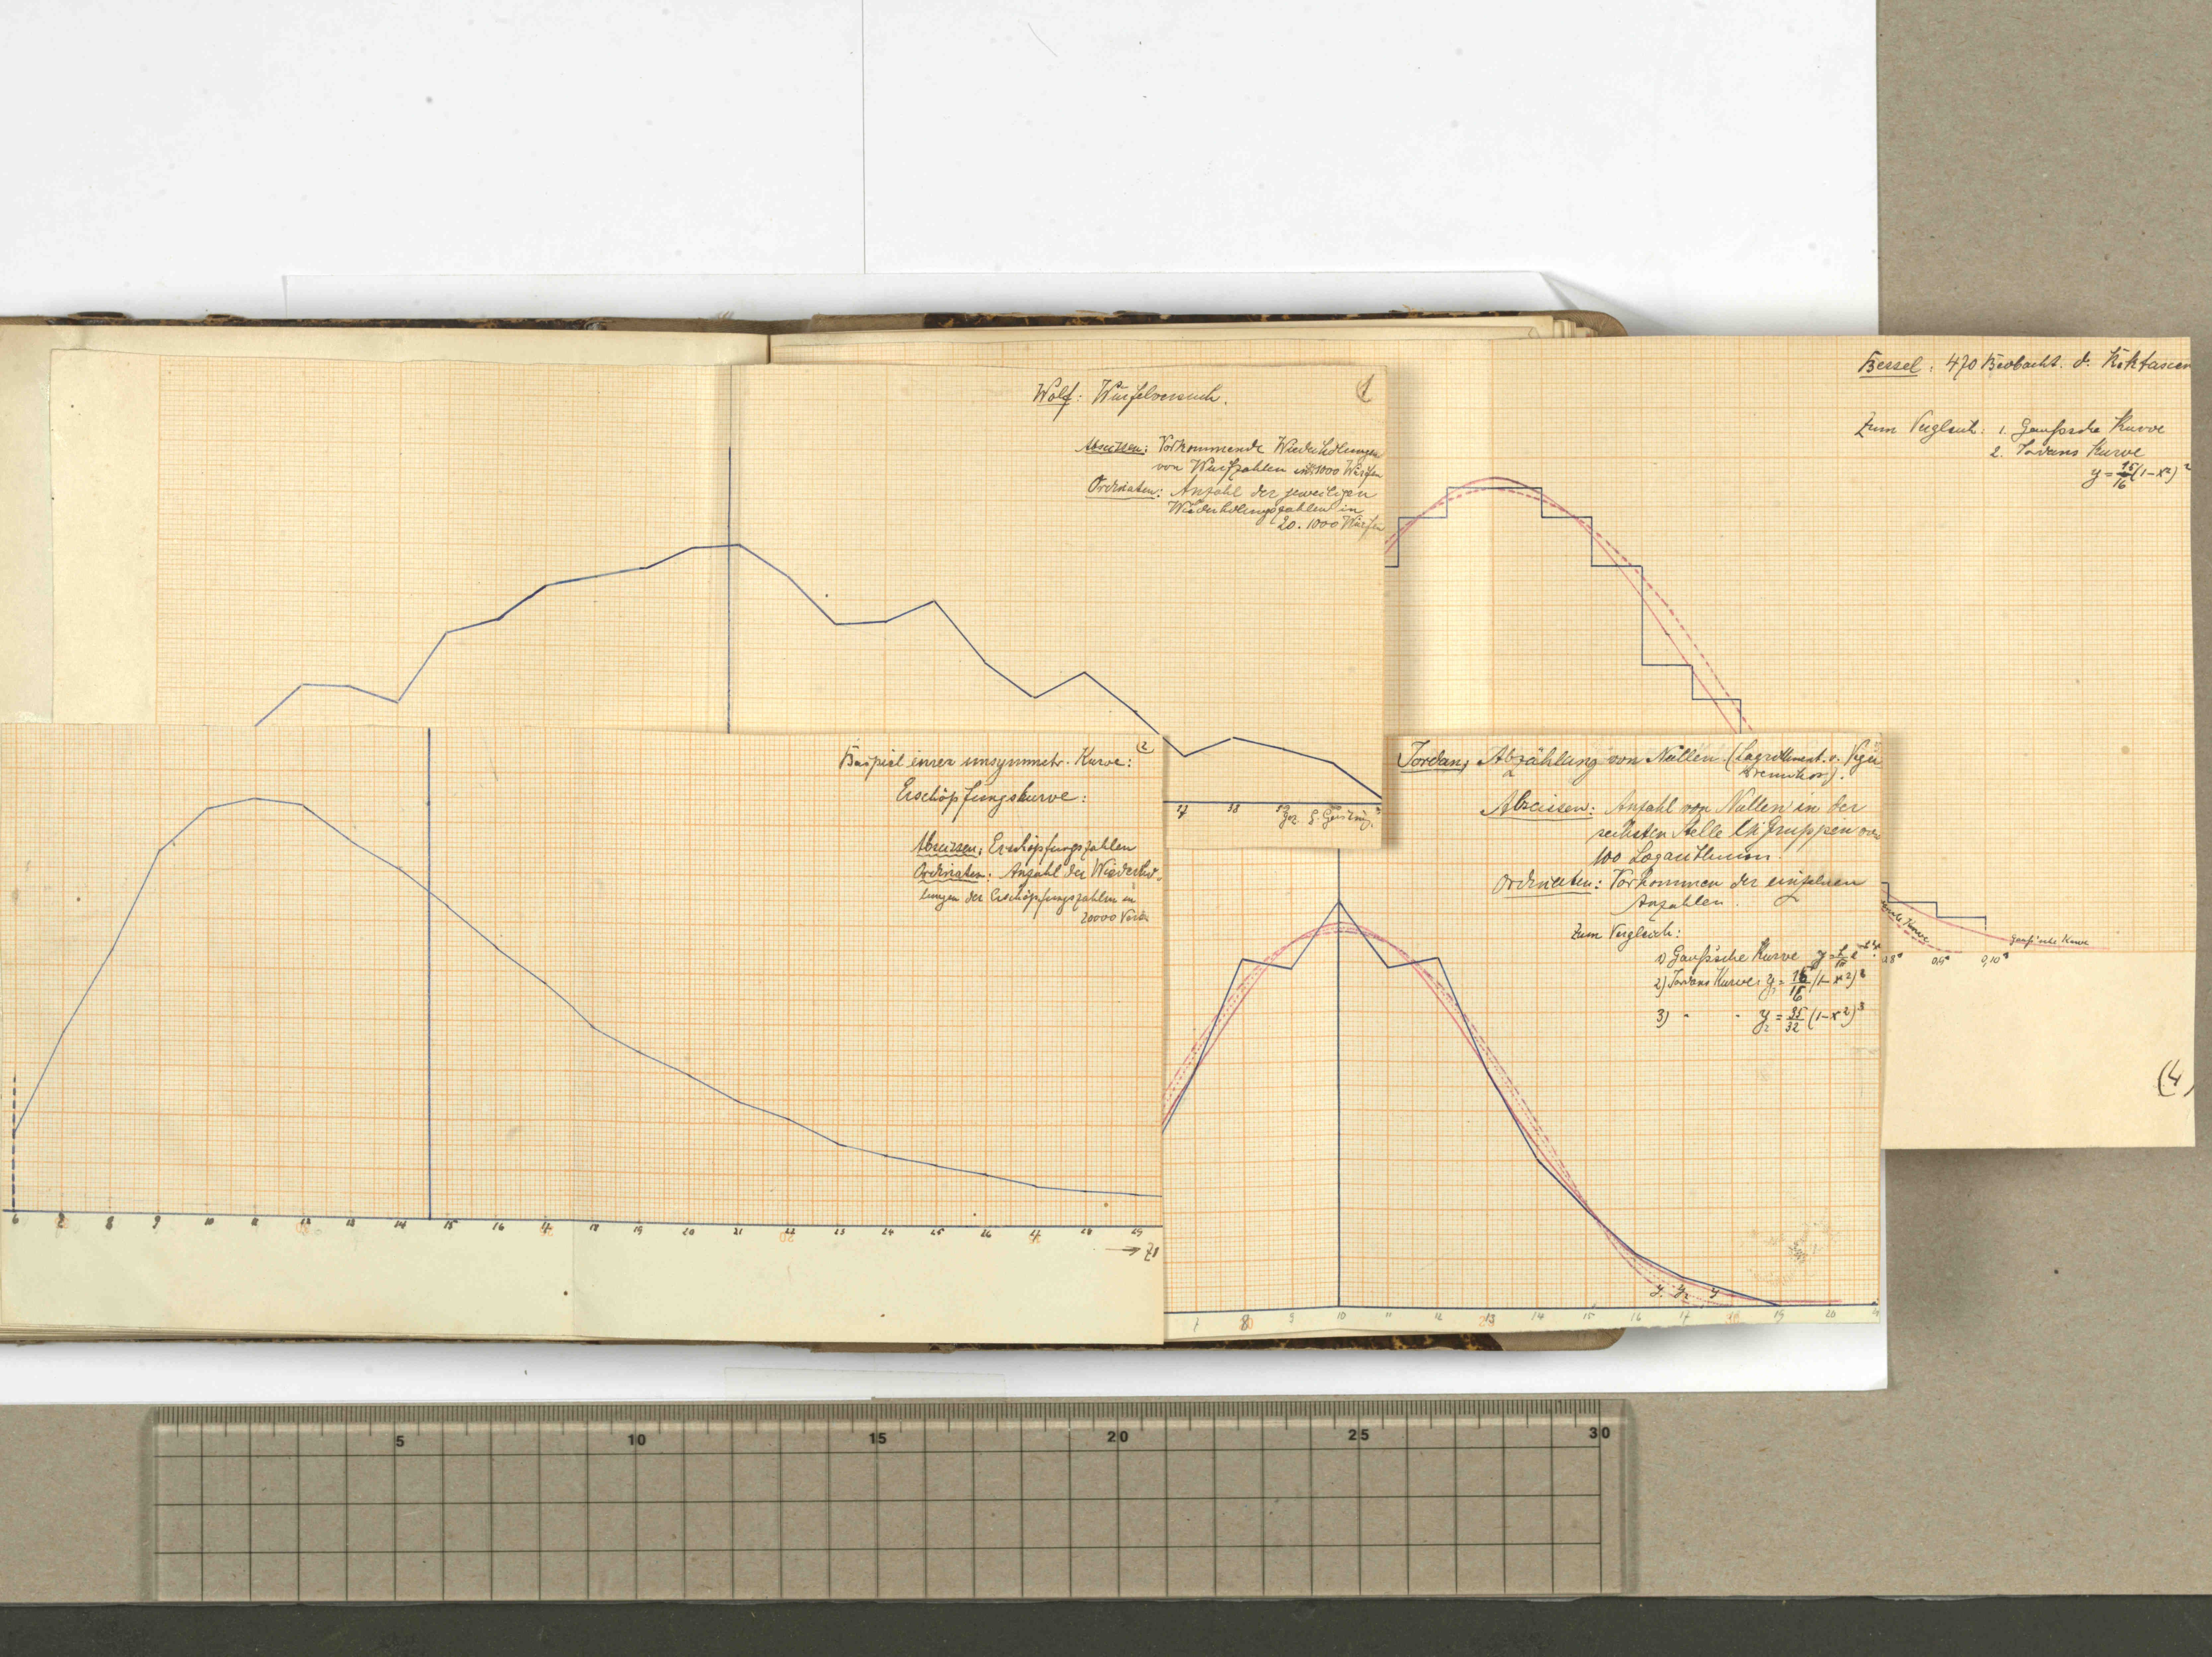 Wolf: Würfelversuch.
1
Abscissen: Vorkommende Wiederholungen
von Wurfzahlen in 1000 Würfen
Ordinaten: Anzahl der jeweiligen
Wiederholungszahlen in
20.1000 Würfen
37 38 39
Gez.
Bessel: 470 Beobacht. d.
Zum Vergleich: 1. Gaußsche Kurve
2. Jordans Kurve
y = 15/16 (1-x²)²
Gauß'sche Kurve
0,9" 0,10"
(4)
Beispiel einer unsymmetr. Kurve: (2
Erschöpfungskurve:
Abscissen: Erschöpfungszahlen
Ordinaten: Anzahl der Wiederho-
lungen der Erschöpfungszahlen in
20000
6 7 8 9 10 11 12 13 14 15 16 17 18 19 20 21 22 23 24 25 26 27 28 29
Jordan, Abzählung von Nullen (Logarithment. v. Vega
Abscissen: Anzahl von Nullen in der
sechsten Stelle bei Gruppen von
100 Logarithmen.
Ordinaten: Vorkommen der einzelnen
Anzahlen.
Zum Vergleich:
1) Gauß'sche Kurve
2) Jordans Kurve: y₁ = 15/16 (1-x²)²
3) " " y₂ = 35/32 (1-x²)³
y₁ y₂ y
7 8 9 10 11 12 13 14 15 16 17 18 19 20
5 10 15 20 25 30